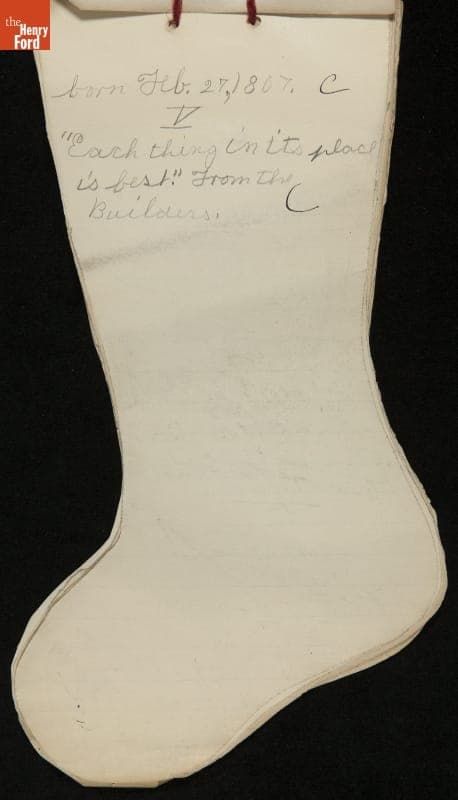 the
Henry
Ford
born Feb. 27, 1807. C
V
"Each thing in its place
is best." From the
Builders. C